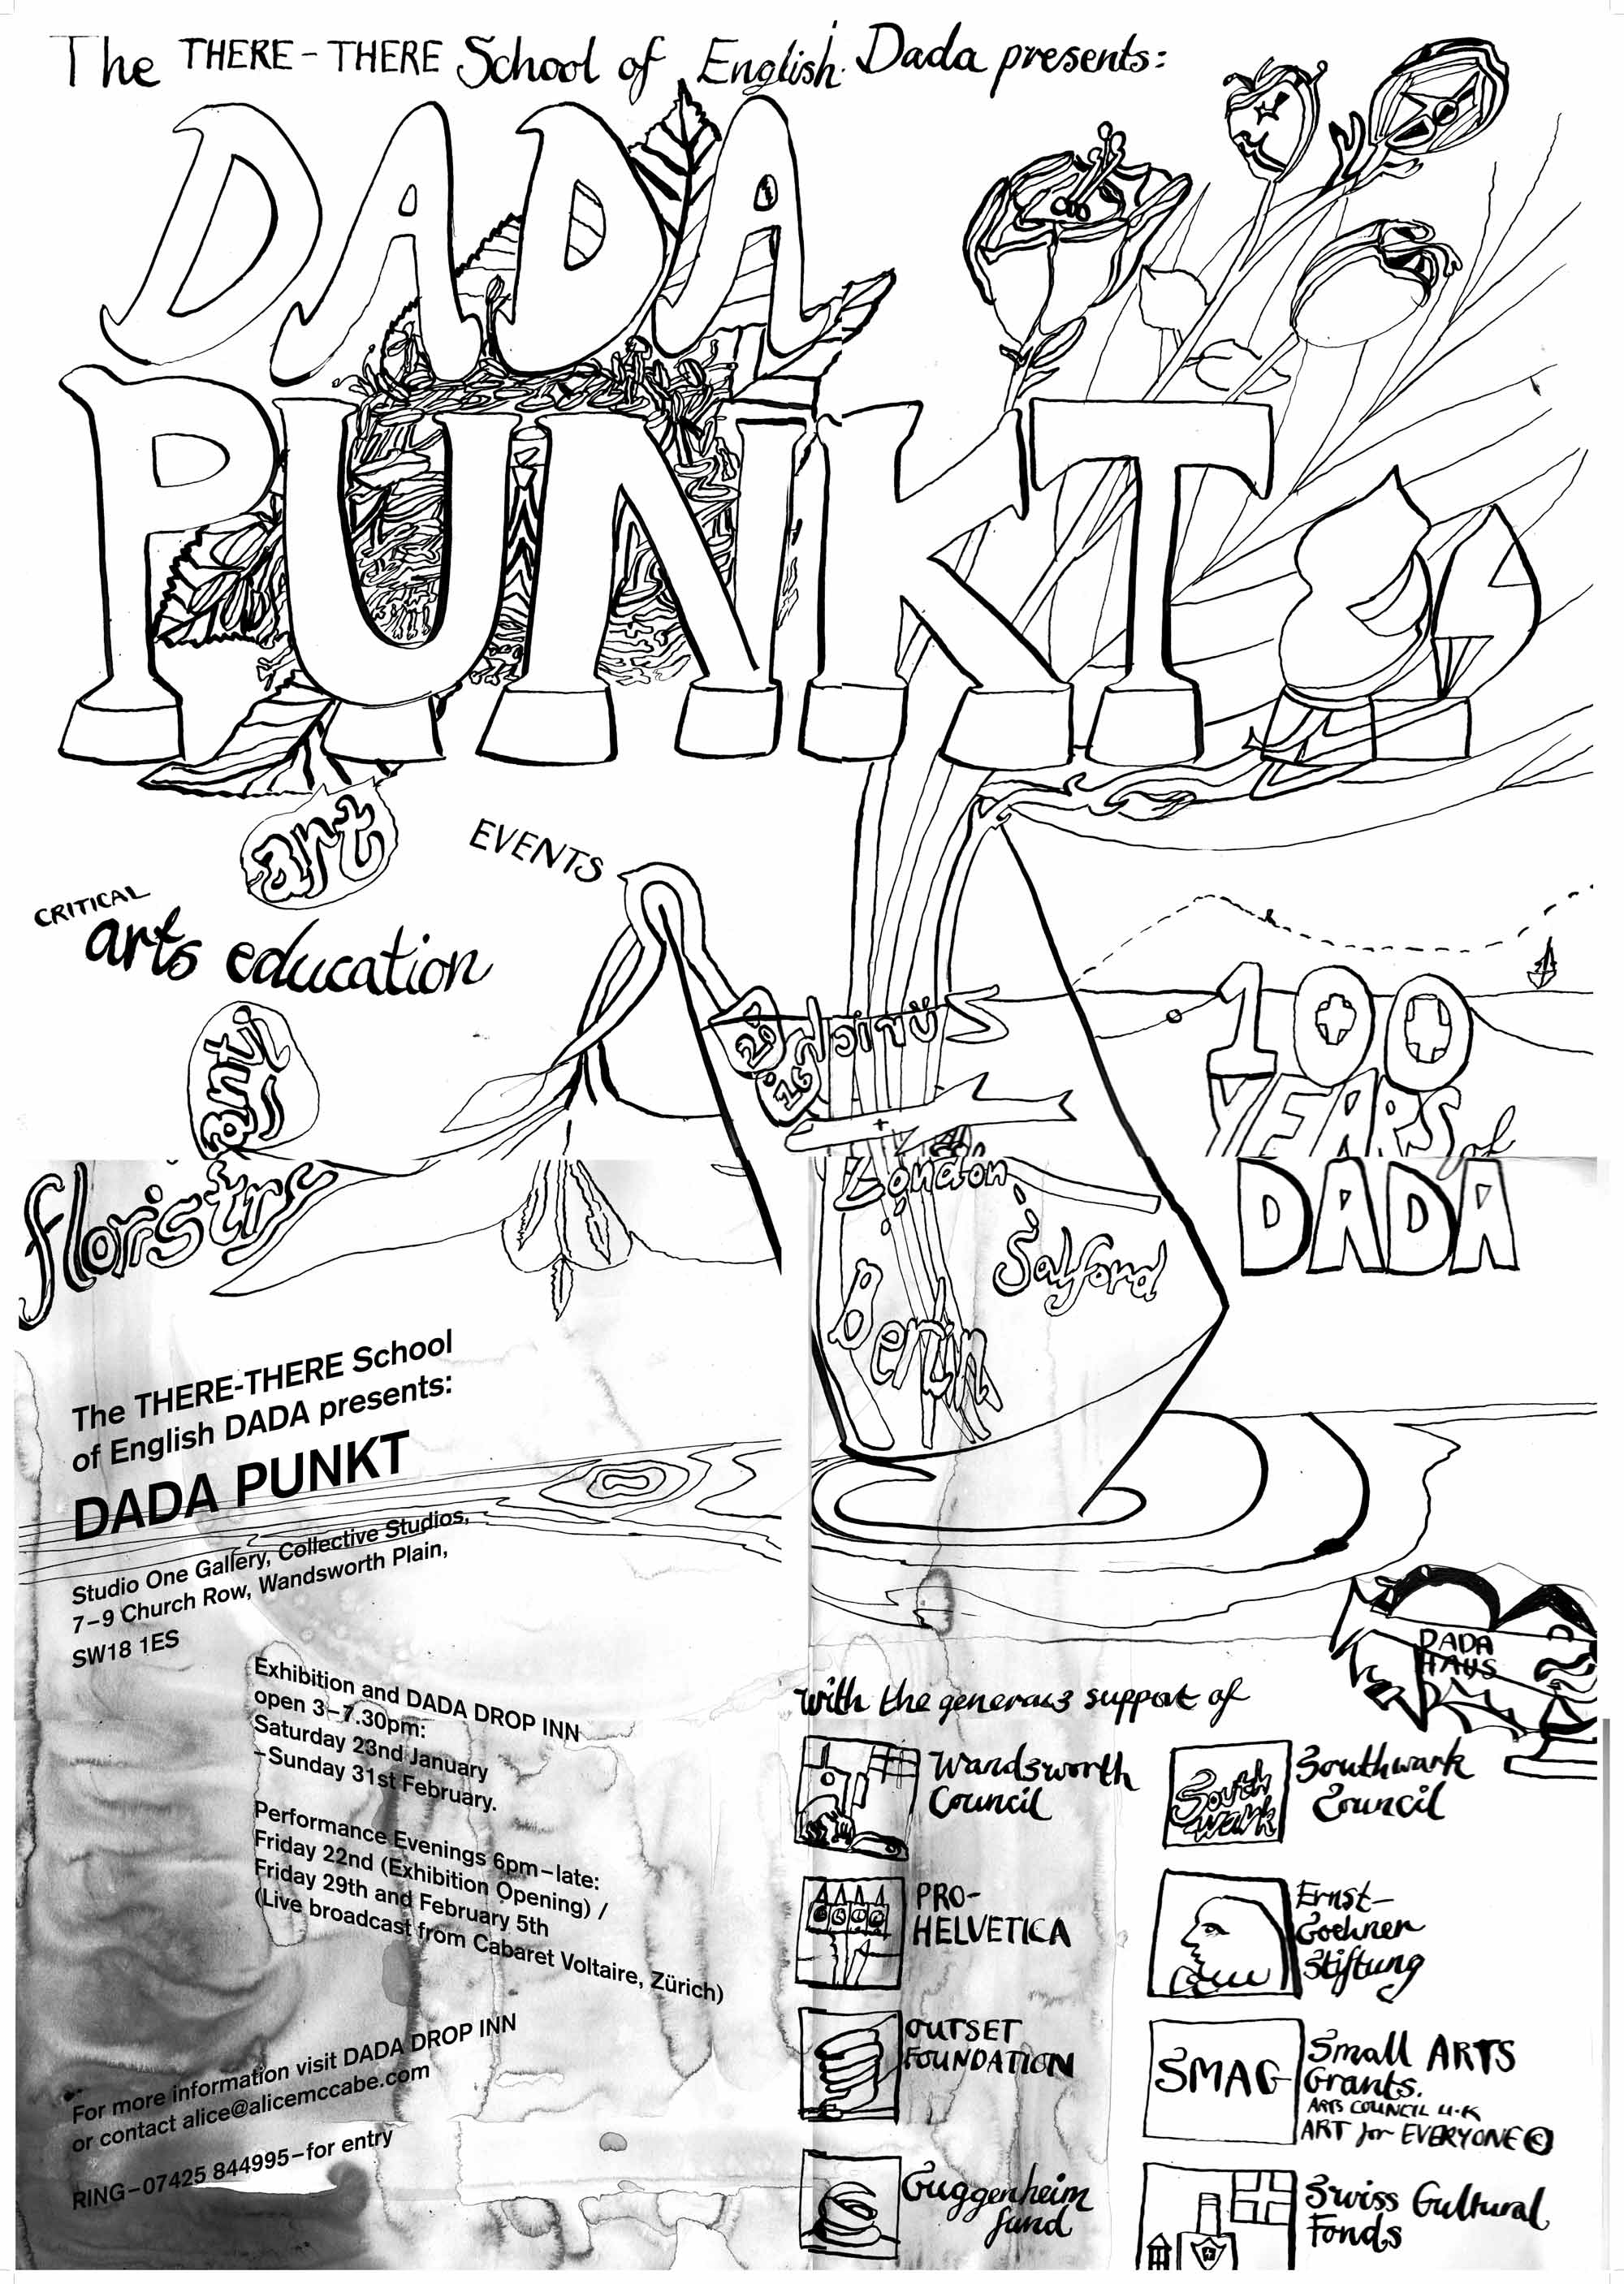 The THERE-THERE School of English Dada presents:
DADA
PUNKT
art
EVENTS
CRITICAL
arts education
anti
floristry
2016
Zürich
+
London
Salford
Berlin
100
YEARS of
DADA
The THERE-THERE School
of English DADA presents:
DADA PUNKT
Studio One Gallery, Collective Studios,
7–9 Church Row, Wandsworth Plain,
SW18 1ES
Exhibition and DADA DROP INN
open 3–7.30pm:
Saturday 23nd January
–Sunday 31st February.
Performance Evenings 6pm–late:
Friday 22nd (Exhibition Opening) /
Friday 29th and February 5th
(Live broadcast from Cabaret Voltaire, Zürich)
For more information visit DADA DROP INN
or contact alice@alicemccabe.com
RING–07425 844995–for entry
DADA
HAUS
with the generous support of
Wandsworth
Council
South
wark
Southwark
Council
PRO-
HELVETICA
Ernst-
Goehner
Stiftung
OUTSET
FOUNDATION
SMAG
Small ARTS
Grants.
ARTS COUNCIL U.K
ART for EVERYONE ©
Guggenheim
fund
Swiss Cultural
Fonds